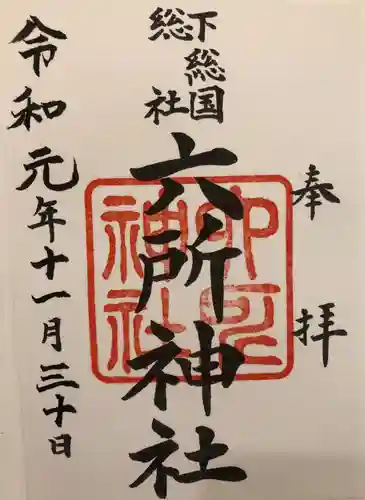 奉拝
下総国
総社
六所神社
令和元年十一月三十日
六所神社